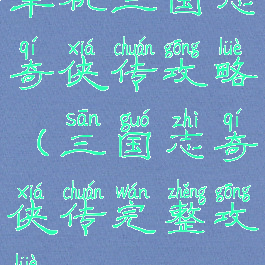 单机三国志
qí xiá chuán gōng lüè
奇侠传攻略
sān guó zhì qí
(三国志奇
xiá chuán wán zhěng gōng
侠传完整攻
lüè